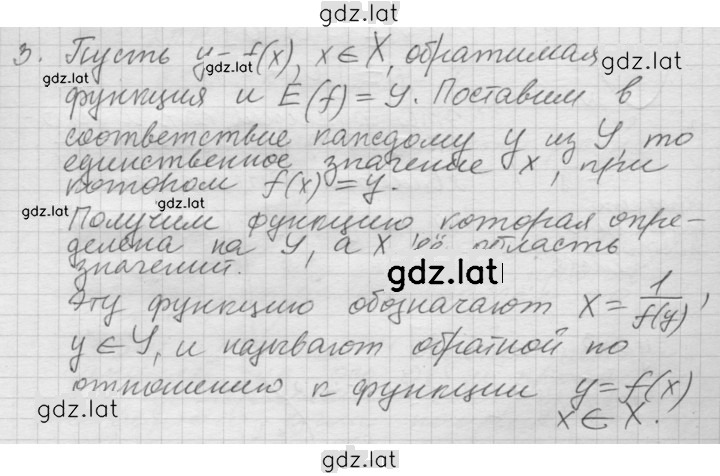 gdz.lat
3. Пусть y = f(x), x ∈ X, обратимая
gdz.lat
gdz.lat
функция и E(f) = Y. Поставим в
gdz.lat
соответствие каждому y из Y, то
единственное значение x, при
котором f(x) = y.
gdz.lat
gdz.lat
Получим функцию которая опре-
делена на Y, а X её область
значений.
gdz.lat
Эту функцию обозначают x = 1/f(y),
y ∈ Y, и называют обратной по
отношению к функции y = f(x)
gdz.lat
x ∈ X.
gdz.lat